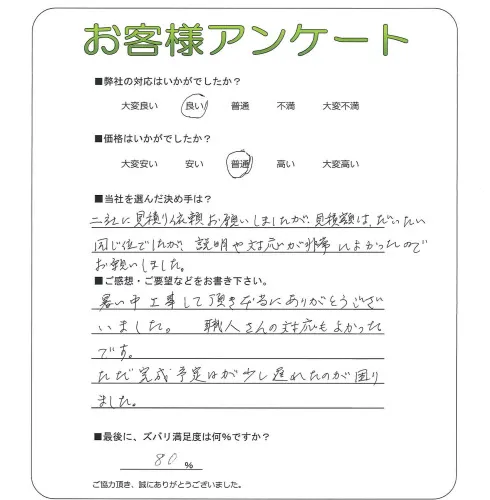 お客様アンケート
■弊社の対応はいかがでしたか?
大変良い 良い 普通 不満 大変不満
■価格はいかがでしたか?
大変安い 安い 普通 高い 大変高い
■当社を選んだ決め手は?
二社に見積り依頼お願いしましたが、見積額は、だいたい
同じ位でしたが、説明や対応が非常によかったので
お願いしました。
■ご感想・ご要望などをお書き下さい。
暑い中工事して頂き本当にありがとうござい
いました。 職人さんの対応もよかった
です。
ただ完成予定日が少し遅れたのが困り
ました。
■最後に、ズバリ満足度は何%ですか?
80 %
ご協力頂き、誠にありがとうございました。